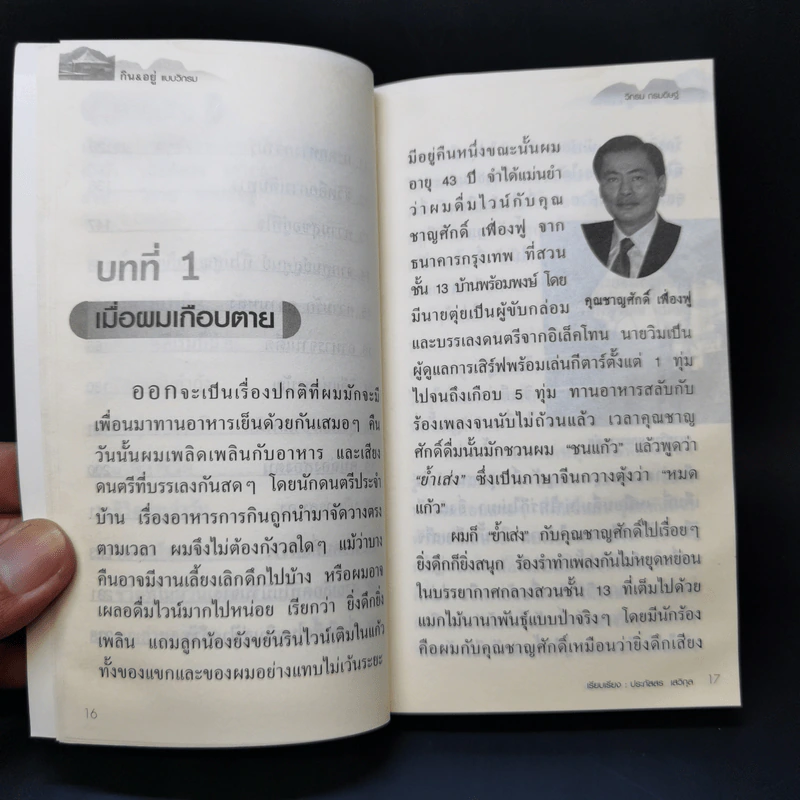 กิน&อยู่ แบบวิกรม
บทที่ 1
เมื่อผมเกือบตาย
ออกจะเป็นเรื่องปกติที่ผมมักจะมี
เพื่อนมาทานอาหารเย็นด้วยกันเสมอๆ คืน
วันนั้นผมเพลิดเพลินกับอาหาร และเสียง
ดนตรีที่บรรเลงกันสดๆ โดยนักดนตรีประจำ
บ้าน เรื่องอาหารการกินถูกนำมาจัดวางตรง
ตามเวลา ผมจึงไม่ต้องกังวลใดๆ แม้ว่าบาง
คืนอาจมีงานเลี้ยงเลิกดึกไปบ้าง หรือผมอาจ
เผลอดื่มไวน์มากไปหน่อย เรียกว่า ยิ่งดึกยิ่ง
เพลิน แถมลูกน้องยังขยันรินไวน์เติมในแก้ว
ทั้งของแขกและของผมอย่างแทบไม่เว้นระยะ
16
วิกรม กรมดิษฐ์
มีอยู่คืนหนึ่งขณะนั้นผม
อายุ 43 ปี จำได้แม่นยำ
ว่าผมดื่มไวน์กับคุณ
ชาญศักดิ์ เฟื่องฟู จาก
ธนาคารกรุงเทพ ที่สวน
ชั้น 13 บ้านพร้อมพงษ์ โดย
คุณชาญศักดิ์ เฟื่องฟู
มีนายตุ่ยเป็นผู้ขับกล่อม
และบรรเลงดนตรีจากอิเล็คโทน นายวิมเป็น
ผู้ดูแลการเสิร์ฟพร้อมเล่นกีตาร์ตั้งแต่ 1 ทุ่ม
ไปจนถึงเกือบ 5 ทุ่ม ทานอาหารสลับกับ
ร้องเพลงจนนับไม่ถ้วนแล้ว เวลาคุณชาญ
ศักดิ์ดื่มนั้นมักชวนผม “ชนแก้ว” แล้วพูดว่า
“ย้ำเส่ง” ซึ่งเป็นภาษาจีนกวางตุ้งว่า “หมด
แก้ว”
ผมก็ “ย้ำเส่ง” กับคุณชาญศักดิ์ไปเรื่อยๆ
ยิ่งดึกก็ยิ่งสนุก ร้องรำทำเพลงกันไม่หยุดหย่อน
ในบรรยากาศกลางสวนชั้น 13 ที่เต็มไปด้วย
แมกไม้นานาพันธุ์แบบป่าจริงๆ โดยมีนักร้อง
คือผมกับคุณชาญศักดิ์เหมือนว่ายิ่งดึกเสียง
เรียบเรียง : ประภัสสร เสวิกุล 17